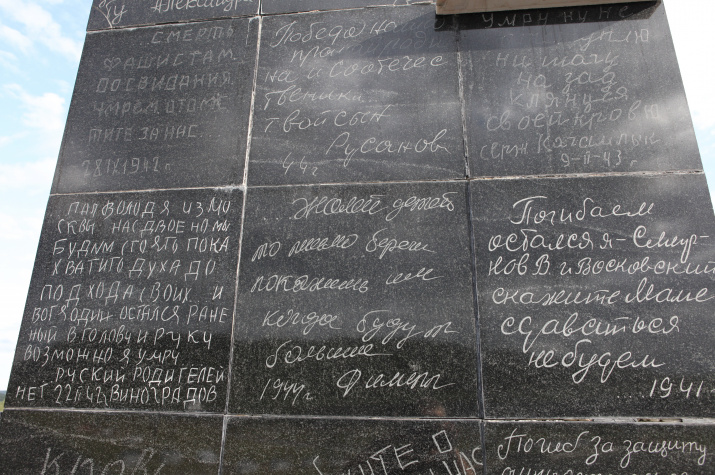 ту Александра
СМЕРТЬ
ФАШИСТАМ
ДОСВИДАНИЯ
УМРЕМ ОТОМС
ТИТЕ ЗА НАС...
28 IX 1942 г
Победа на
на и соотечес
твенники
Твой сын
Русанов
44 г
УМРУ НУ НЕ
НИ ШАГУ
НАЗАД
КЛЯНУСЯ
СВОЕЙ КРОВЮ
9-II-43 г.
ПАЛ ВОЛОДЯ ИЗ МО
СКВИ НАС ДВОЕ НО МЫ
БУДИМ СТОЯТЬ ПОКА
ХВАТИТ ДУХА ДО
ПОДХОДА СВОИХ И
ВОТ Я ОДИН ОСТАЛСЯ РАНЕ
НЫЙ В ГОЛОВУ И РУКУ
ВОЗМОЖНО Я УМРУ
РУСКИЙ РОДИТЕЛЕЙ
НЕТ 22 II 42 г ВИНОГРАДОВ
Жалей детей
то письмо береги
покажишь им
когда будут
большие
1944 г
Погибаем
остался я - Смир-
нов В и Восковский
скажите Маме
сдаваться
не будем
1941
КРОВЬ
ИТЕ О
НАС
Погиб за защиту